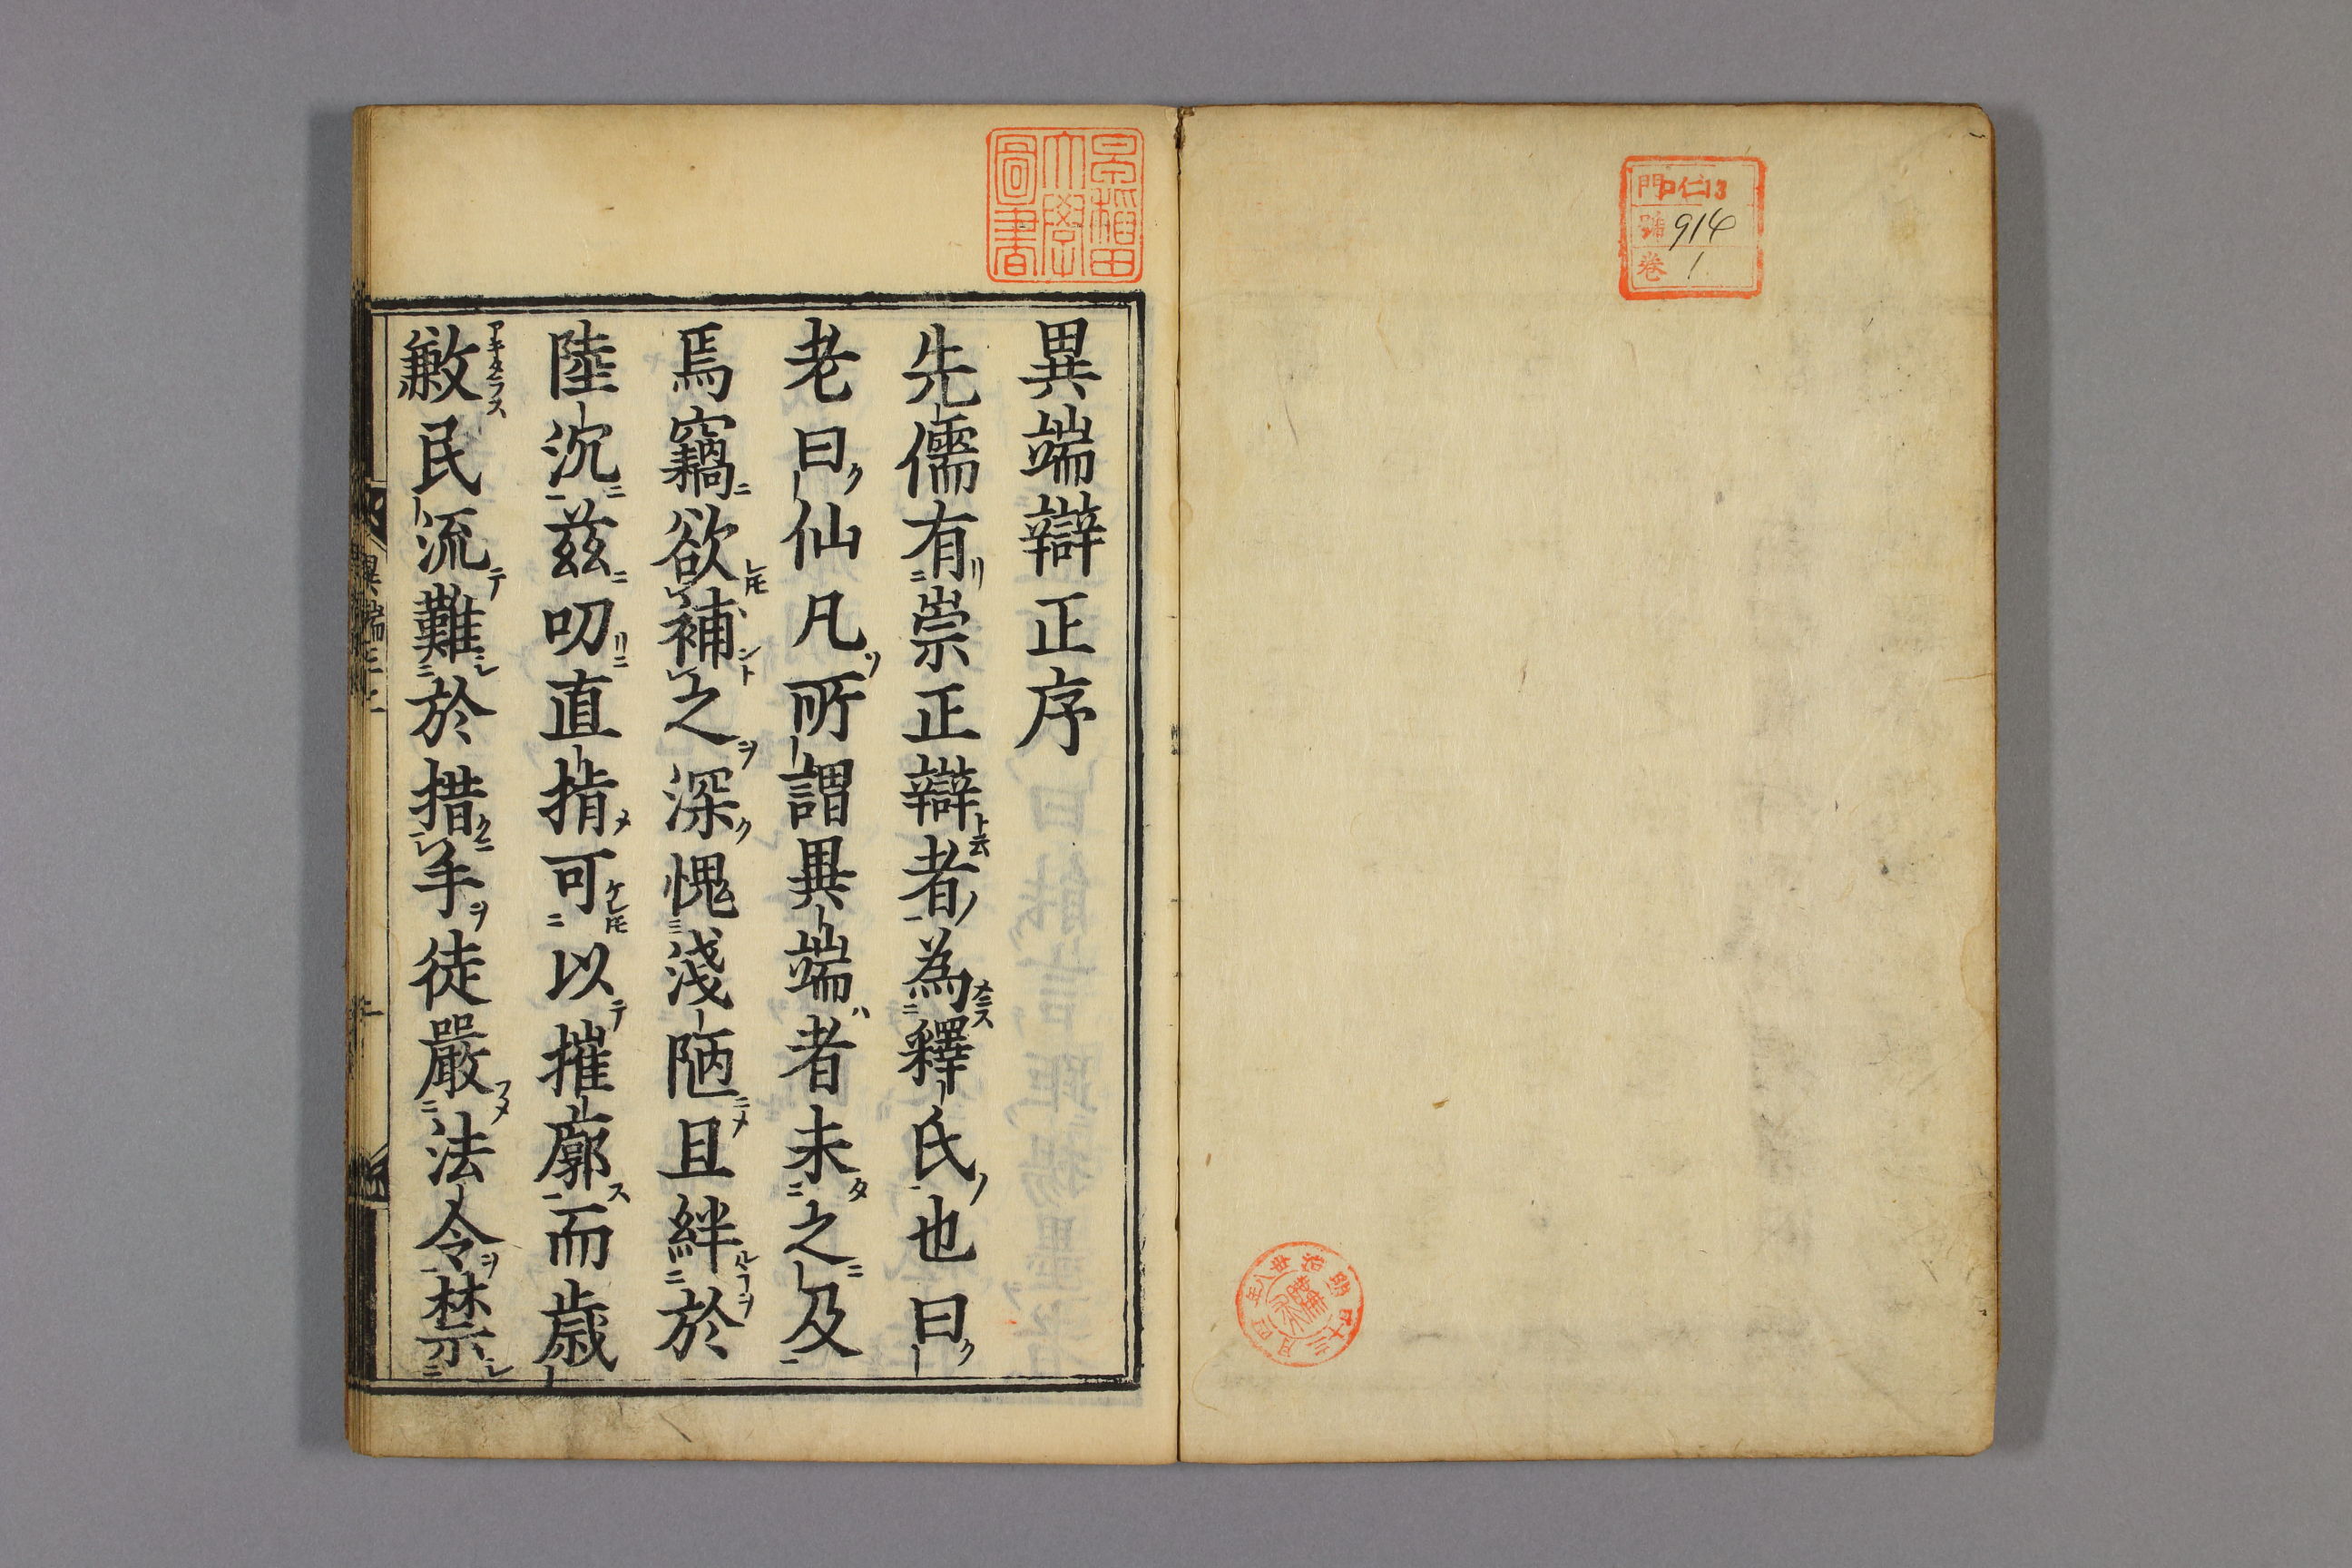 門 ロ仁13
號 914
卷 1
早稲田
大學
圖書
異端辯正序
先儒有崇正辯者為釋氏也曰
老曰仙凡所謂異端者未之及
焉竊欲補之深愧淺陋且絆於
陸沉茲叨直指可以摧廓而歳
敝民流難於措手徒嚴法令禁